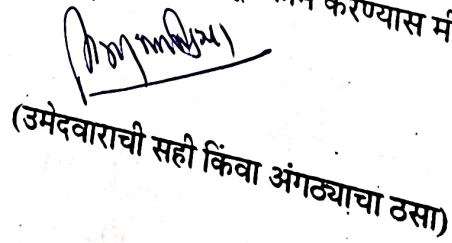 करण्यास मं
(उमेदवाराची सही किंवा अंगठ्याचा ठसा)